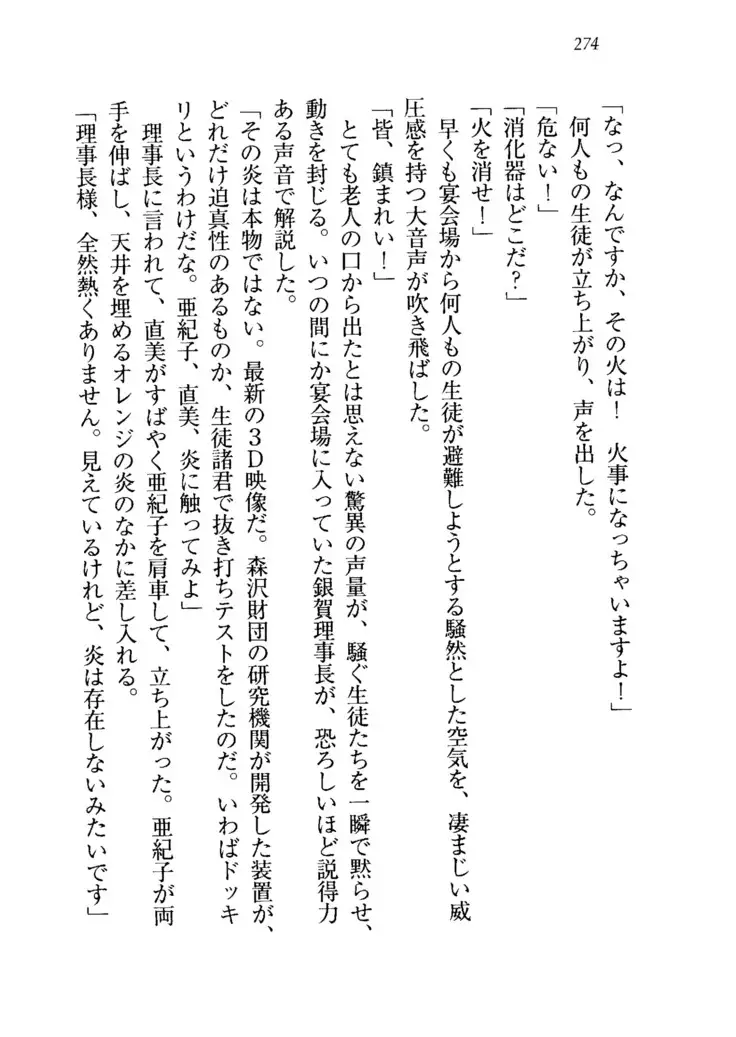 274
「なっ、なんですか、その火は！　火事になっちゃいますよ！」
何人もの生徒が立ち上がり、声を出した。
「危ない！」
「消化器はどこだ？」
「火を消せ！」
早くも宴会場から何人もの生徒が避難しようとする騒然とした空気を、凄まじい威
圧感を持つ大音声が吹き飛ばした。
「皆、鎮まれい！」
とても老人の口から出たとは思えない驚異の声量が、騒ぐ生徒たちを一瞬で黙らせ、
動きを封じる。いつの間にか宴会場に入っていた銀賀理事長が、恐ろしいほど説得力
ある声音で解説した。
「その炎は本物ではない。最新の3D映像だ。森沢財団の研究機関が開発した装置が、
どれだけ迫真性のあるものか、生徒諸君で抜き打ちテストをしたのだ。いわばドッキ
リというわけだな。亜紀子、直美、炎に触ってみよ」
理事長に言われて、直美がすばやく亜紀子を肩車して、立ち上がった。亜紀子が両
手を伸ばし、天井を埋めるオレンジの炎のなかに差し入れる。
「理事長様、全然熱くありません。見えているけれど、炎は存在しないみたいです」